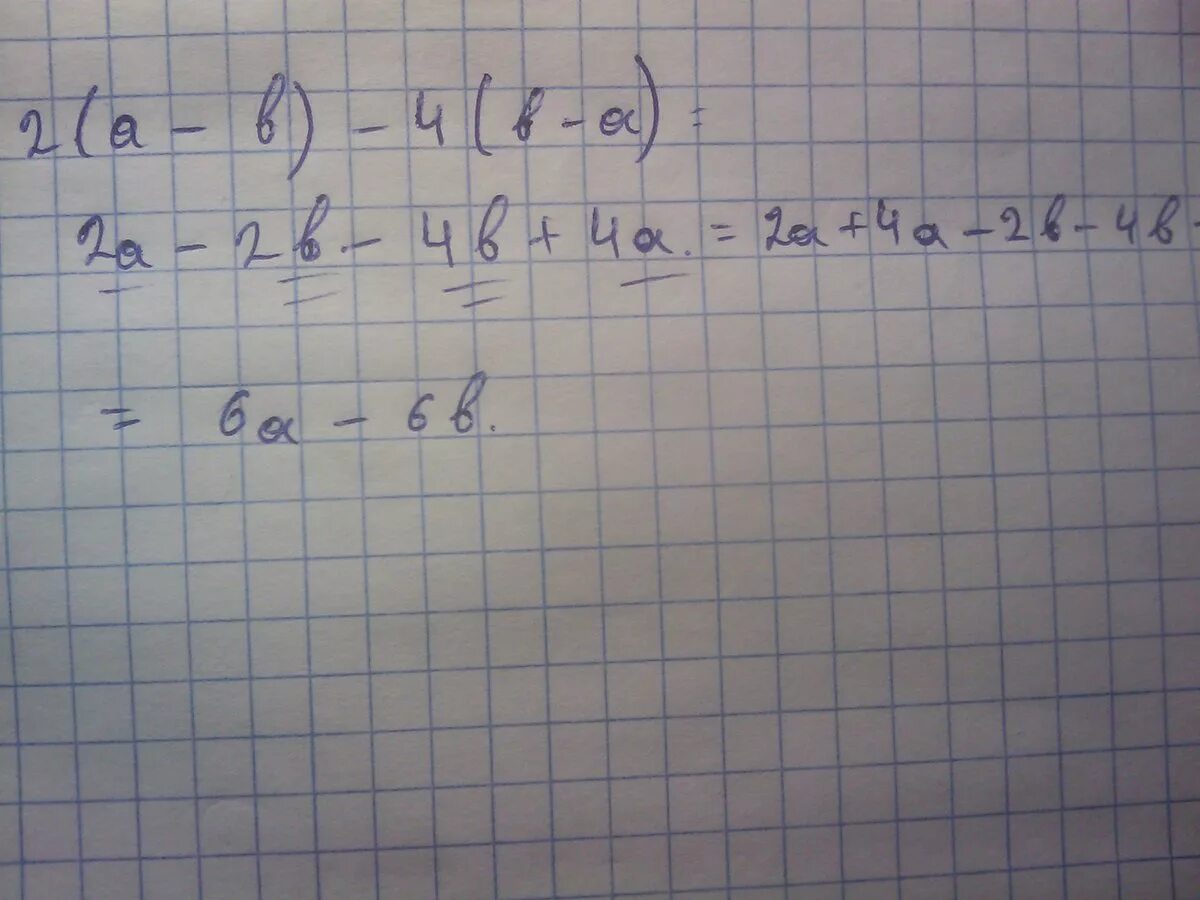 2(a - в) - 4(в - a) =
2a - 2в - 4в + 4a. = 2a + 4a - 2в - 4в -
= 6a - 6в.